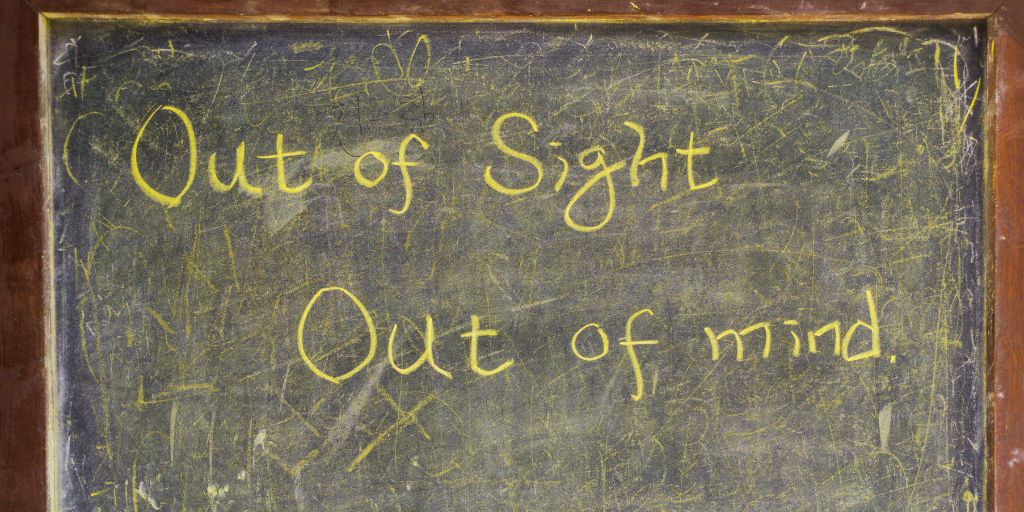 Out of Sight
Out of mind.